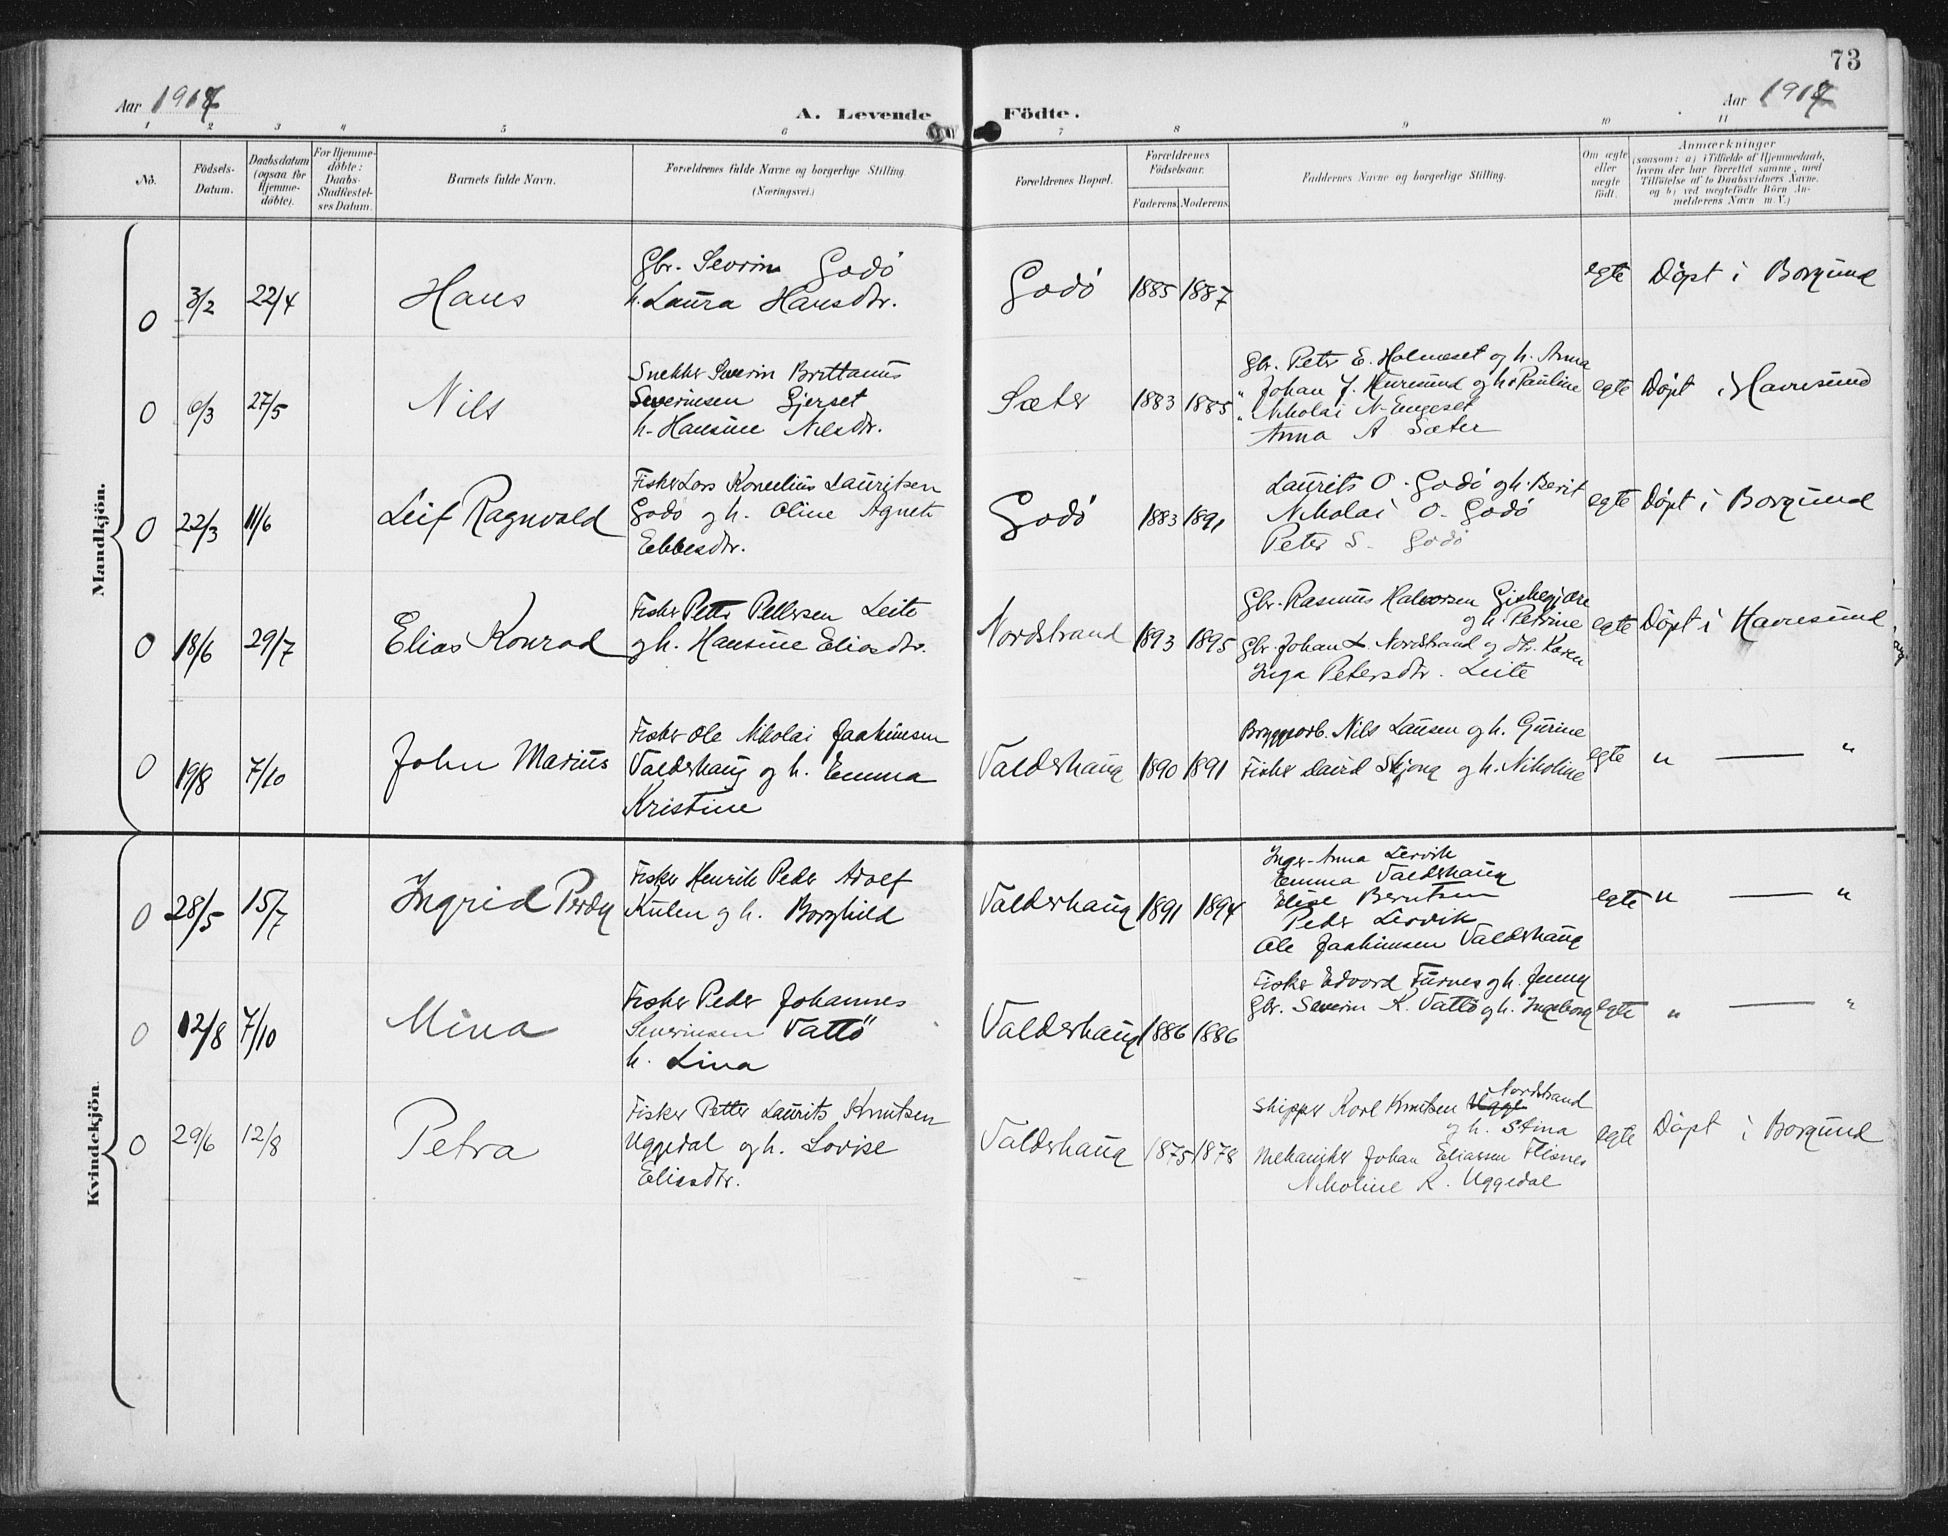 73
Aar 1917
A. Levende
Födte.
Aar 1917
1 2 3 4 5 6 7 8 9 10 11
No.
Födsels-
Datum.
Daabsdatum
(ogsaa for
Hjemme-
döbte).
For Hjemme-
döbte:
Daabs-
Stadfæstel-
ses Datum.
Barnets fulde Navn.
Forældrenes fulde Navne og borgerlige Stilling.
(Næringsvei.)
Forældrenes Bopæl.
Forældrenes
Födselsaar.
Faderens. Moderens.
Faddernes Navne og borgerlige Stilling.
Om ægte
eller
uægte
födt.
Anmærkninger
(saasom: a) i Tilfælde af Hjemmedaab,
hvem der har forrettet samme, med
Tilföielse af to Daabsvidners Navne.
og b) ved uægtefödte Börn An-
melderens Navn m. V.)
Mandkjön.
0 3/2 22/4 Hans
Gbr. Severin Godö
h. Laura Hansdtr.
Godö 1885 1887 egte Döpt i Borgund
0 6/3 27/5 Nils
Snekker Severin Brittanus
Severinsen Gjerset
h. Hansine Nilsdtr.
Sæter 1883 1885
Gbr. Peter E. Holmeset og h. Anna
" Johan J. Huresund og h. Pauline
" Nikolai N. Engeset
Anna A Sæter
egte Döpt i Havnesund
0 22/3 11/6 Leif Ragnvald
Fisker Lars Kornelius Lauritsen
Godö og h. Oline Agnete
Ebbesdtr.
Godö 1883 1891
Laurits O. Godö og h. Berit
Nikolai O. Godö
Peter S. Godö
egte Döpt i Borgund
0 18/6 29/7 Elias Konrad
Fisker Petter Pettersen Leite
og h. Hansine Eliasdtr.
Nordstrand 1893 1895
Gbr. Rasmus Halvorsen Giskegjære
og h. Petrine
Gbr. Johan L. Nordstrand og dtr. Karen
Inga Petersdtr. Leite
egte Döpt i Havnesund
0 19/8 7/10 John Marius
Fisker Ole Nikolai Joakimsen
Valderhaug og h. Emma
Kristine
Valderhaug 1890 1891
Bryggearb. Nils Lausen og h. Gurine
Fisker David Skjong og h. Nikoline
egte " — "
Kvindekjön.
0 28/5 15/7 Ingrid Perdy
Fisker Henrik Peder Adolf
Kulen og h. Borghild
Valderhaug 1891 1894
Inger-Anna Lervik
Emma Valderhaug
Elise Berntsen
Peder Lervik
Ole Joakimsen Valderhaug
egte " — "
0 12/8 7/10 Mina
Fisker Peder Johannes
Severinsen Vattö
h. Lina
Valderhaug 1886 1886
Fisker Edvard Furnes og h. Jenny
Gbr. Severin K. Vattö og h. Ingeborg
egte " — "
0 29/6 12/8 Petra
Fisker Petter Laurits Knutsen
Uggedal og h. Lovise
Eliasdtr.
Valderhaug 1875 1878
Skipper Karl Knutsen Nordstrand
og h. Stina
Mekaniker Johan Eliassen Flisnes
Nikoline K. Uggedal
egte Döpt i Borgund